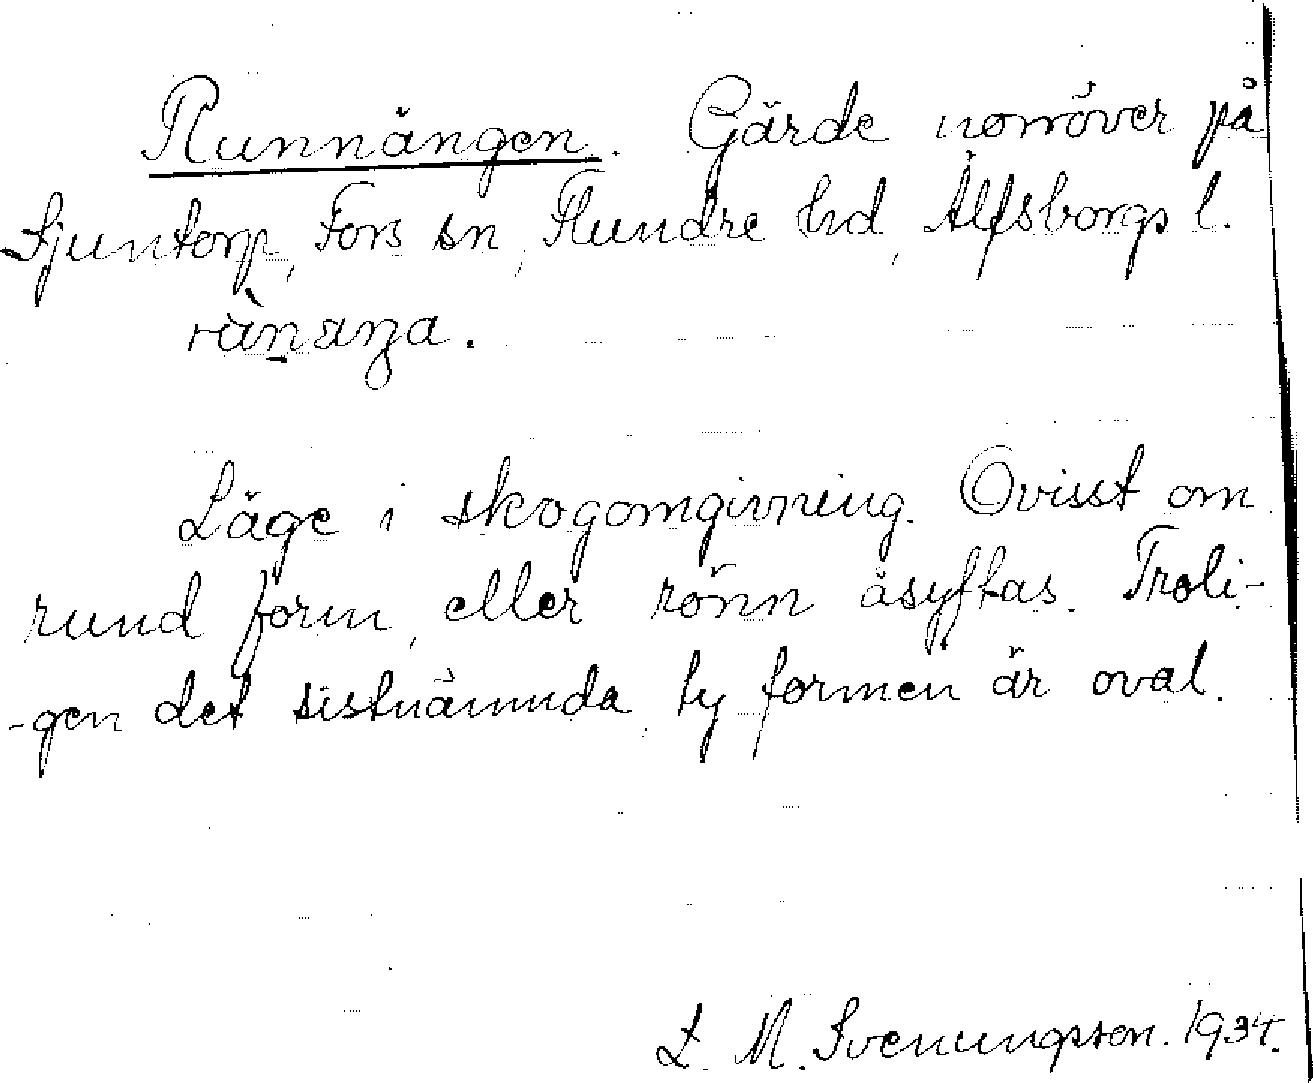 Runnängen. Gärde norröver på
Sjuntorp, Fors sn, Flundre hd, Älfsborgs l.
Läge i skogomgivning. Ovisst om
rund form, eller rönn åsyftas. Troli-
-gen det sistnämnda, ty formen är oval.
L. M. Svenungsson. 1934.